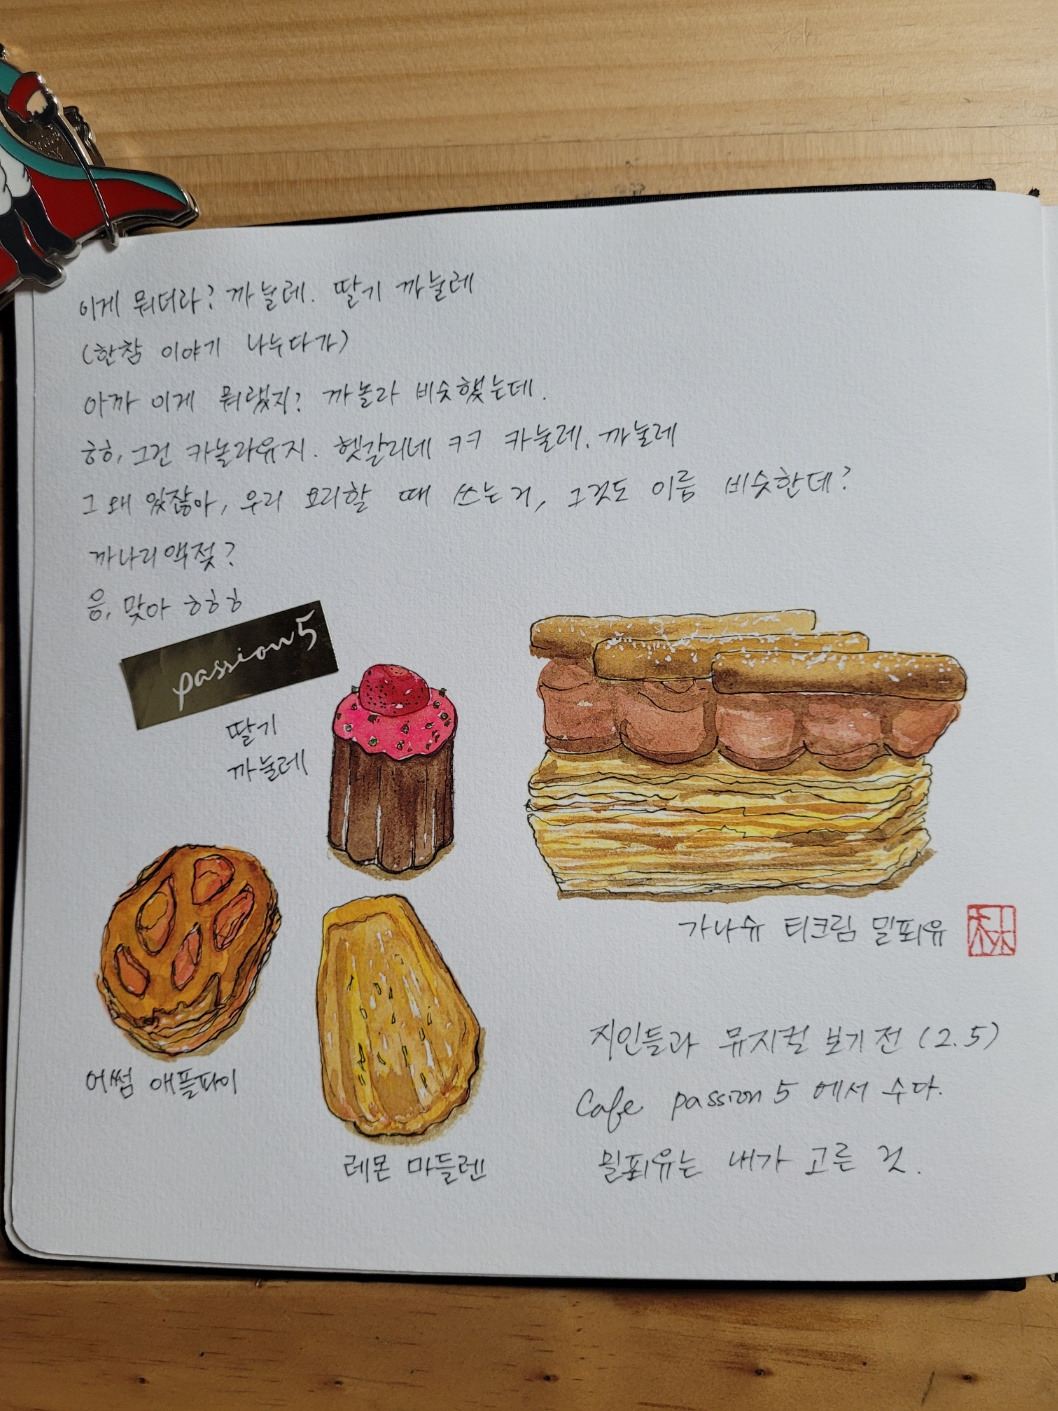 이게 뭐더라? 까눌레. 딸기 까눌레
(한참 이야기 나누다가)
아까 이게 뭐랬지? 까놀라 비슷했는데.
ㅎㅎ, 그건 카놀라유지. 헷갈리네 ㅋㅋ 카눌레. 까눌레
그 왜 있잖아, 우리 요리할 때 쓰는거, 그것도 이름 비슷한데?
까나리액젖?
응, 맞아 ㅎㅎㅎ
passion5
딸기
까눌레
가나슈 티크림 밀푀유
어썸 애플파이
레몬 마들렌
지인들과 뮤지컬 보기 전 (2.5)
Cafe passion 5 에서 수다.
밀푀유는 내가 고른 것.